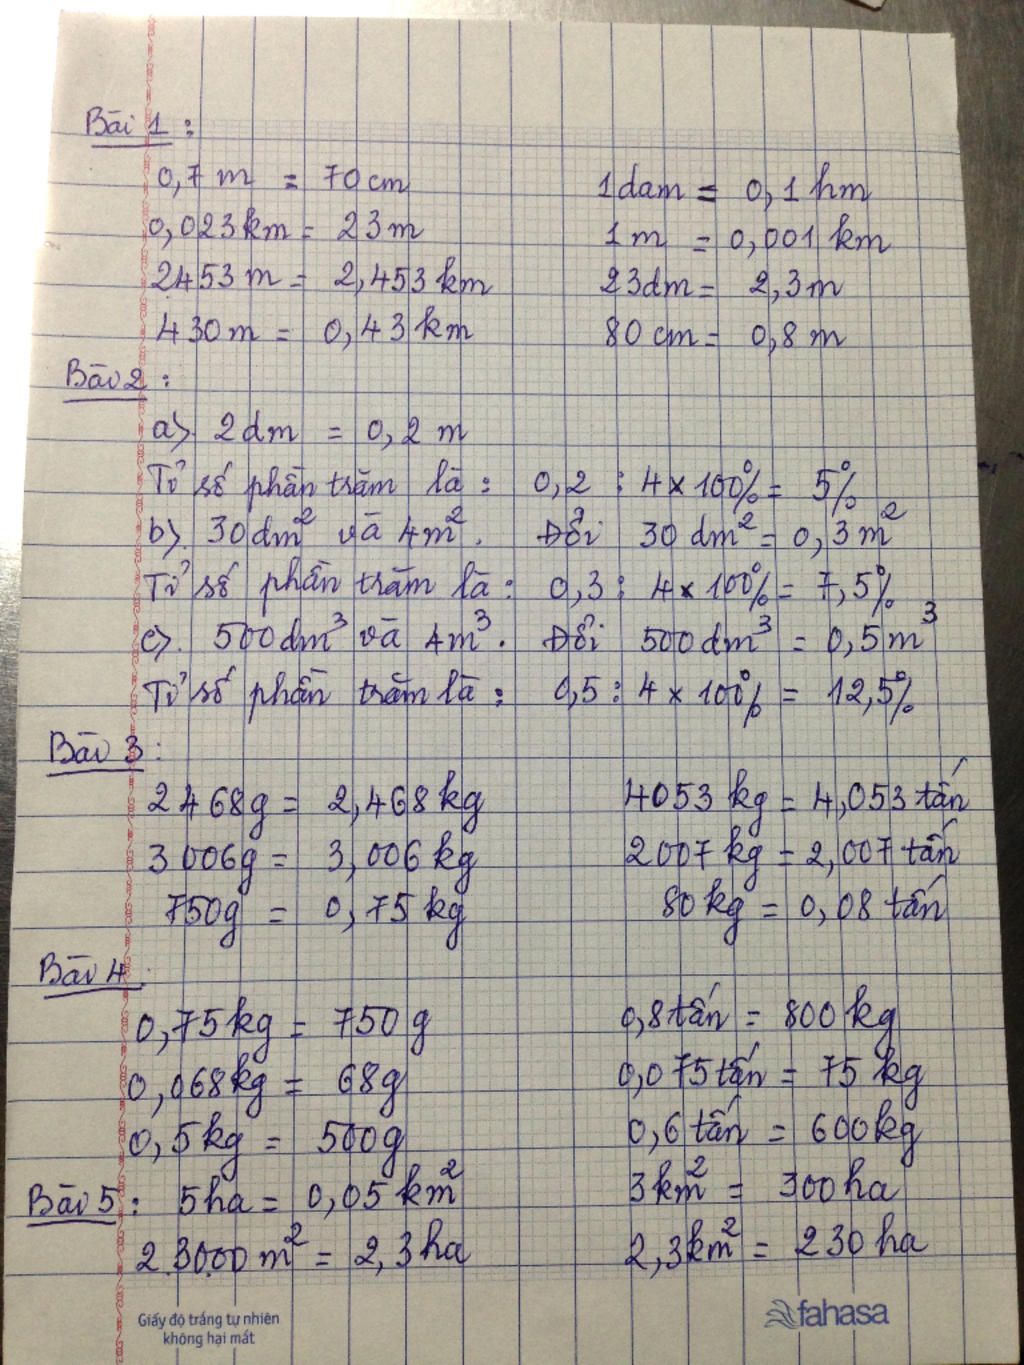 Bài 1 :
0,7 m = 70 cm 1 dam = 0,1 hm
0,023 km = 23 m 1 m = 0,001 km
2453 m = 2,453 km 23 dm = 2,3 m
430 m = 0,43 km 80 cm = 0,8 m
Bài 2 :
a) 2 dm = 0,2 m
Tỉ số phần trăm là : 0,2 : 4 x 100% = 5%
b). 30 dm² và 4 m². Đổi 30 dm² = 0,3 m²
Tỉ số phần trăm là : 0,3 : 4 x 100% = 7,5%
c). 500 dm³ và 4 m³. Đổi 500 dm³ = 0,5 m³
Tỉ số phần trăm là : 0,5 : 4 x 100% = 12,5%
Bài 3 :
2468g = 2,468 kg 4053 kg = 4,053 tấn
3006g = 3,006 kg 2007 kg = 2,007 tấn
750g = 0,75 kg 80 kg = 0,08 tấn
Bài 4 :
0,75 kg = 750 g 0,8 tấn = 800 kg
0,068 kg = 68g 0,075 tấn = 75 kg
0,5 kg = 500g 0,6 tấn = 600 kg
Bài 5 : 5 ha = 0,05 km² 3 km² = 300 ha
23000 m² = 2,3 ha 2,3 km² = 230 ha
Giấy độ trắng tự nhiên
không hại mắt
fahasa